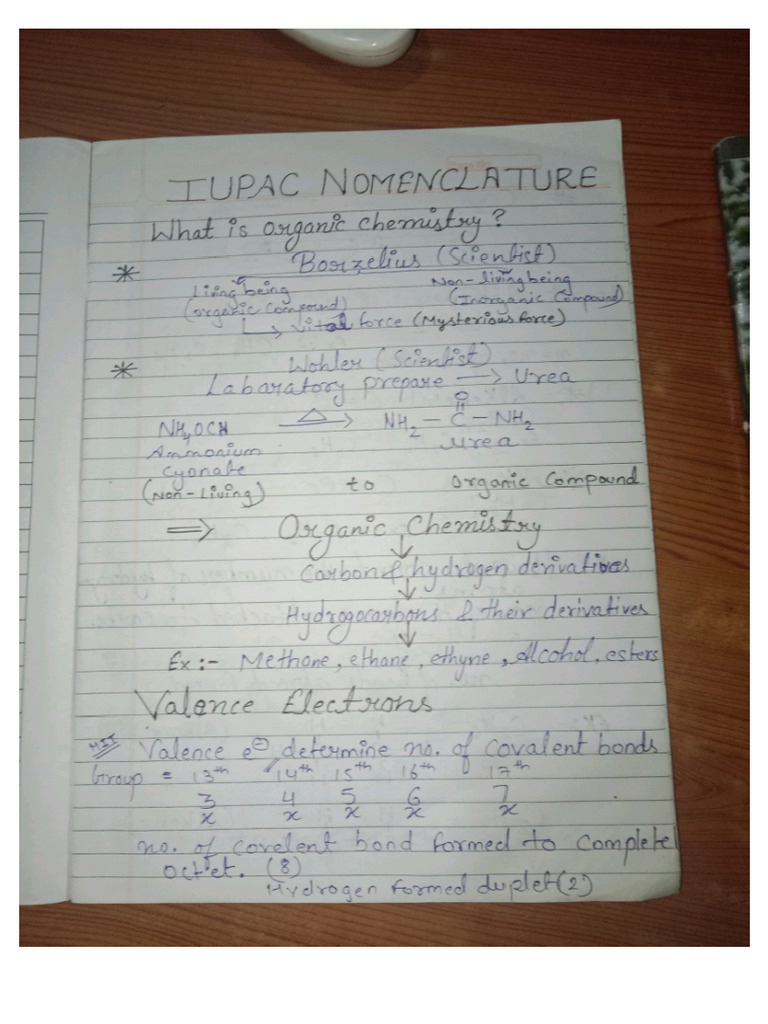 IUPAC NOMENCLATURE
What is organic chemistry?
* Borzelius (Scientist)
Living being Non-living being
(organic compound) (Inorganic Compound)
↳ vital force (Mysterious force)
* Wohler (Scientist)
Labaratory prepare → Urea
O
NH4OCN △→ NH2 – C – NH2
Ammonium urea
Cyonate
(Non-Living) to Organic Compound
⇒ Organic Chemistry
↓
Carbon & hydrogen derivatives
↓
Hydrogocarbons & their derivatives
↓
Ex:- Methane, ethane, ethyne, Alcohol, esters
Valence Electrons
Valence e⊖ determine no. of covalent bonds
Group = 13th 14th 15th 16th 17th
3 4 5 6 7
x x x x x
no. of covelent bond formed to complete
octet. (8)
Hydrogen formed duplet (2)